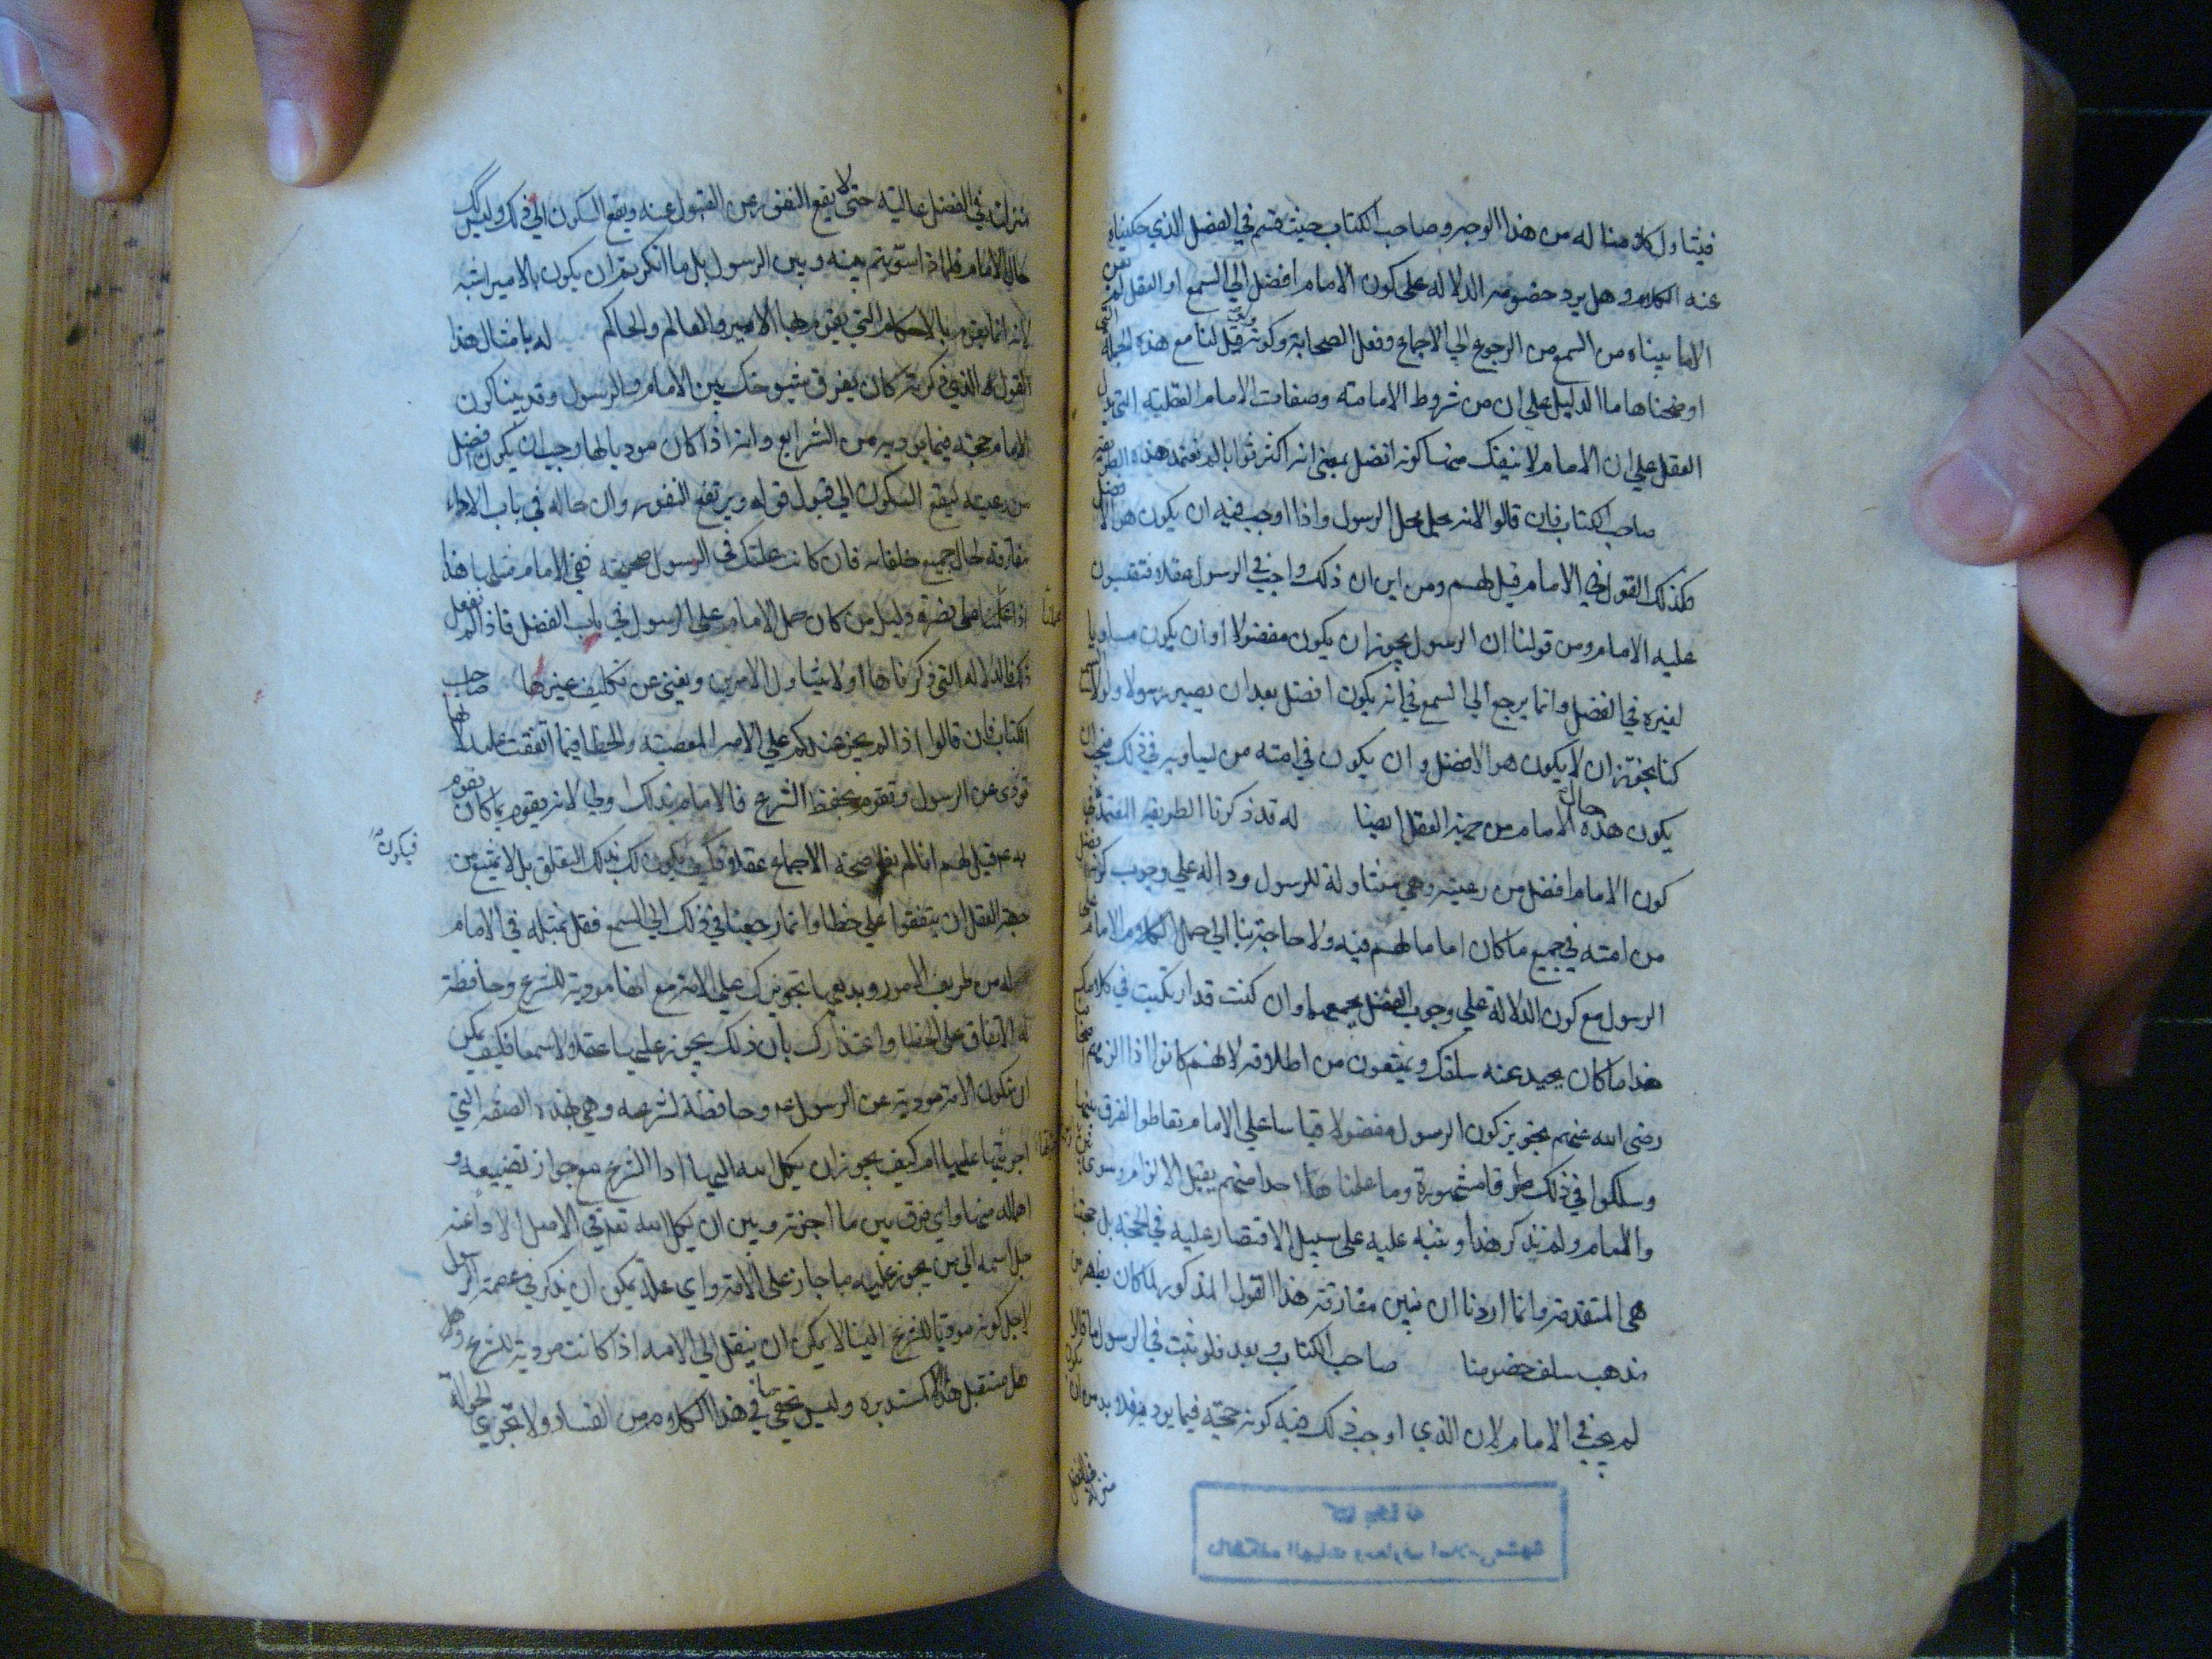 فيتناول كلامنا له من هذا الوجه وصاحب الكتاب حيث قسم في الفصل الذي حكيناه
عنه الكلام وهل يرد خصومه الدلالة على كون الامام افضل الى السمع او العقل لم
الا ما بيناه من السمع من الرجوع الى الاجماع وفعل الصحابة وكونه قيل لنا مع هذه الجملة
اوضحناها ما الدليل على ان من شروط الامامة وصفات الامام العقلية التي
العقل على ان الامام لا ينفك منها كونه افضل بمعنى انه اكثر ثوابا لم نعتمد هذه
صاحب الكتاب فان قالوا لانه يحل محل الرسول واذا اوجب فيه ان يكون هو الا
فكذلك القول في الامام قيل لهم ومن اين ان ذلك واجب في الرسول عقلا فتقيسون
عليه الامام ومن قولنا ان الرسول يجوز ان يكون مفضولا او ان يكون مساويا
لغيره في الفضل وانما يرجع الى السمع في انه يكون افضل بعد ان يصير رسولا ولولا
كنا نجوز ان لا يكون هو الافضل وان يكون في امته من يساويه في ذلك فيجب ان
يكون هذه حال الامام من جهة العقل ايضا له قد ذكرنا الطريقة المعتمدة في
كون الامام افضل من رعيته وهي متناولة للرسول ودالة على وجوب كونه
من امته في جميع ما كان اماما لهم فيه ولا حاجة بنا الى حمل الكلام في الامام على
الرسول مع كون الدلالة على وجوب الفضل يجمعهما وان كنت قد ارتكبت في كلامك
هذا ما كان يحيد عنه سلفك ويمتنعون من اطلاقه لانهم كانوا اذا الزمهم
رضى الله عنهم تجويز كون الرسول مفضولا قياسا على الامام تعاطوا الفرق بينهما
وسلكوا في ذلك طرقا مشهورة وما علمنا احدا منهم يقبل الالزام وسوى بين
والامام ولم نذكر هذا وننبه عليه على سبيل الاقتصار عليه في الحجة بل
هي المتقدمة وانما اردنا ان نبين مفارقة هذا القول المذكور لما كان يظهر من
مذهب سلف خصومنا صاحب الكتاب وبعد فلو ثبت في الرسول ما قالوا
لم يجب في الامام لان الذي اوجب ذلك فيه كونه حجة فيما يوديه فلا بد من ان يكون
منزلته في الفضل
منزلته في الفضل عالية حتى لا يقع النفور عن القبول عنه ويقع السكون الى ذلك وليس كذلك
حال الامام فلماذا سويتم بينه وبين الرسول بل ما انكرتم ان يكون بالامير اشبه
لانه انما يقوم بالاحكام التي يقوم بها الامير والعالم والحاكم له بامثال هذا
القول الذي ذكرته كان يفرق شيوخك بين الامام والرسول وقد بينا كون
الامام حجة فيما يوديه من الشرايع وانه اذا كان موديا لها وجب ان يكون افضل
من رعيته ليقع السكون الى قبول قوله ويرتفع النفور وان حاله في باب الاداء
مفارقة لحال جميع خلفائه فان كانت علتك في الرسول صحيحة ففي الامام مثلها هذا
اذا علمنا على نصرة دليل من كان حمل الامام على الرسول في باب الفضل فاذا لم نفعل
ذلك فالدلالة التي ذكرناها اولا يتناول الامرين ويغني عن تكليف غيرها صاحب
الكتاب فان قالوا اذا لم يجز عندكم على الامة المعصية والخطا فيما اتفقت عليه لانها
تودى عن الرسول وتقوم بحفظ الشرع فالامام بذلك اولى لانه يقوم بما كان يقوم
به عم قيل لهم انا لم نقل صحة الاجماع عقلا فكيف يكون لك بذلك التعلق بل لا يمتنع من
فيكون
جهة العقل ان يتفقوا على خطا وانما رجعنا في ذلك الى السمع فقل بمثله في الامام
له من طريف الامور وبديعها تجويزك على الامة مع انها مودية للشرع وحافظة
له الاتفاق على الخطا واعتذارك بان ذلك يجوز عليها عقلا ولا سمعا فكيف يمكن
ان تكون الامة مودية عن الرسول عم وحافظة لشرعه وهي بهذه الصفة التي
اجريتها عليها ام كيف يجوز ان يكل الله اليها اداء الشرع مع جواز تضييعه و
اهماله منها واي فرق بين ما اجزته وبين ان يكل الله تعالى في الاصل الاداء عنه
جل اسمه الى من يجوز عليه ما جاز على الامة واي علة يمكن ان يذكر في عصمة الرسول
لاجل كونه موديا للشرع الينا لا يمكن ان ينقل الى الامة اذا كانت مودية للشرع وهل
هل مستقبل هذا الا كمستدبره وليس يخفى ما في هذا الكلام من الفساد ولا تجرى الحوالة